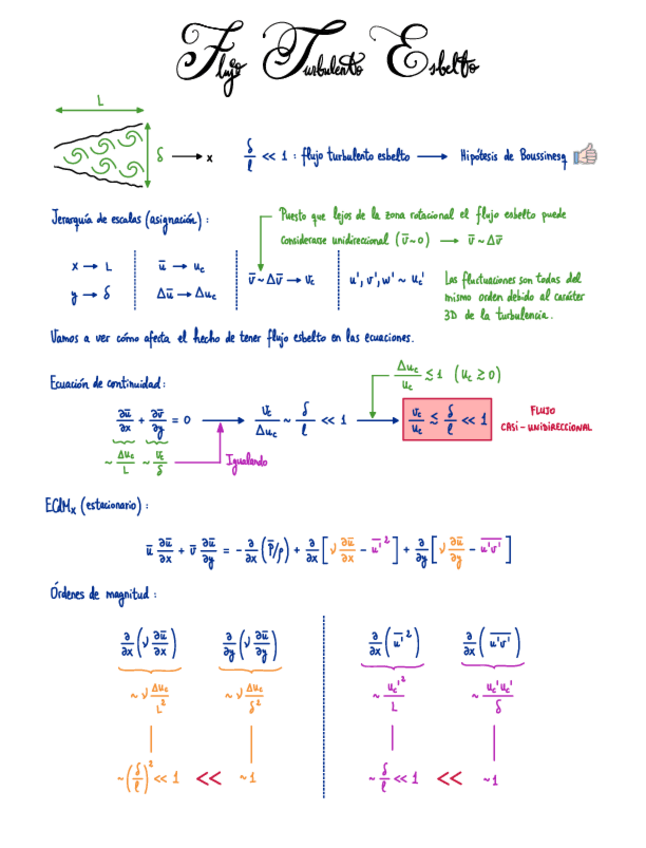 Flujo Turbulento Esbelto
L
δ → x
δ/l << 1 : flujo turbulento esbelto → Hipótesis de Boussinesq 👍
Jerarquía de escalas (asignación) :
Puesto que lejos de la zona rotacional el flujo esbelto puede
considerarse unidireccional (v̅ ~ 0) → v̅ ~ Δv̅
x → L
y → δ
u̅ → u_c
Δu̅ → Δu_c
v̅ ~ Δv̅ → v_c
u', v', w' ~ u_c'
Las fluctuaciones son todas del
mismo orden debido al carácter
3D de la turbulencia.
Vamos a ver cómo afecta el hecho de tener flujo esbelto en las ecuaciones.
Ecuación de continuidad:
Δu_c/u_c ≲ 1 (u_c ≳ 0)
∂u̅/∂x + ∂v̅/∂y = 0 → v_c/Δu_c ~ δ/l << 1 → v_c/u_c ≲ δ/l << 1
FLUJO
CASI-UNIDIRECCIONAL
~ Δu_c/L ~ v_c/δ
Igualando
ECdMx (estacionario) :
u̅ ∂u̅/∂x + v̅ ∂u̅/∂y = - ∂/∂x (P̅/ρ) + ∂/∂x [ν ∂u̅/∂x - u̅'²] + ∂/∂y [ν ∂u̅/∂y - u'v'̅]
Órdenes de magnitud :
∂/∂x (ν ∂u̅/∂x) ∂/∂y (ν ∂u̅/∂y) ∂/∂x (u̅'²) ∂/∂x (u'v'̅)
~ ν Δu_c/L² ~ ν Δu_c/δ² ~ u_c'²/L ~ u_c'u_c'/δ
~ (δ/l)² << 1 << ~ 1 ~ δ/l << 1 << ~ 1